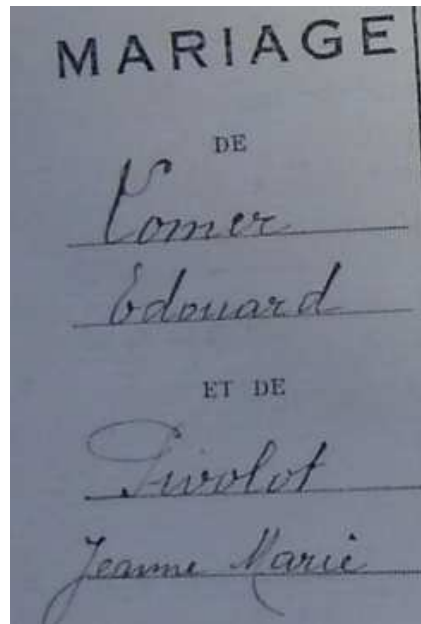 MARIAGE
DE
Vomer
Edouard
ET DE
Pivolot
Jeanne Marie